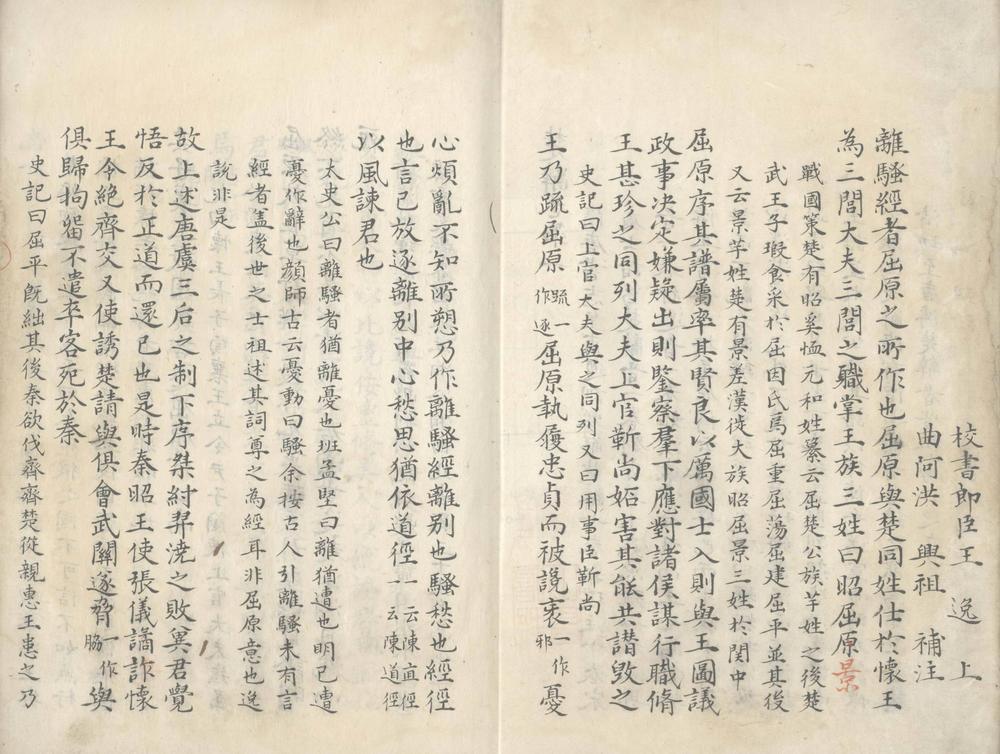 校書郎臣王　逸　上
曲阿洪　興祖　補注
離騷經者屈原之所作也屈原與楚同姓仕於懷王
為三閭大夫三閭之職掌王族三姓曰昭屈原景
戰國策楚有昭奚恤元和姓纂云屈楚公族芈姓之後楚
武王子瑕食采於屈因氏焉屈重屈蕩屈建屈平並其後
又云景芊姓楚有景差漢徙大族昭屈景三姓於関中
屈原序其譜屬率其賢良以厲國士入則與王圖議
政事决定嫌疑出則鑒察羣下應對諸侯謀行職脩
王甚珍之同列大夫上官靳尚妬害其能共譖毀之
史記曰上官大夫與之同列又曰用事臣靳尚
王乃疏屈原疏一作逐屈原執履忠貞而被讒衺一作邪憂
心煩亂不知所愬乃作離騷經離别也騷愁也經徑
也言已放逐離别中心愁思猶依道徑一云陳直徑一云陳道徑
以風諫君也
太史公曰離騷者猶離憂也班孟堅曰離猶遭也明已遭
憂作辭也顔師古云憂動曰騷余按古人引離騷未有言
經者盖後世之士祖述其詞尊之為經耳非屈原意也逸
說非是
故上述唐虞三后之制下序桀紂羿澆之敗冀君覺
悟反於正道而還已也是時秦昭王使張儀譎詐懷
王令絶齊交又使誘楚請與俱會武關遂脅一作脇與
俱歸拘留不遣卒客死於秦
史記曰屈平既絀其後秦欲伐齊齊楚從親惠王患之乃